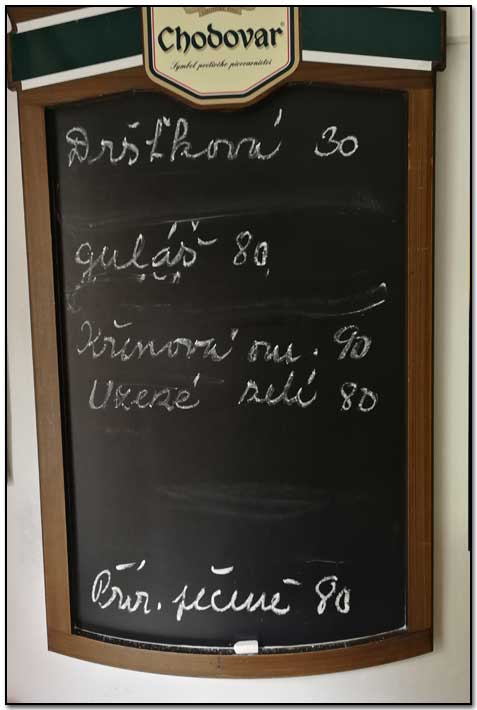 Chodovar
Symbol poctivého pivovarnictví
Dršťková 30
guláš 80
Křenová om. 90
Uzené zelí 80
Přír. pečeně 80